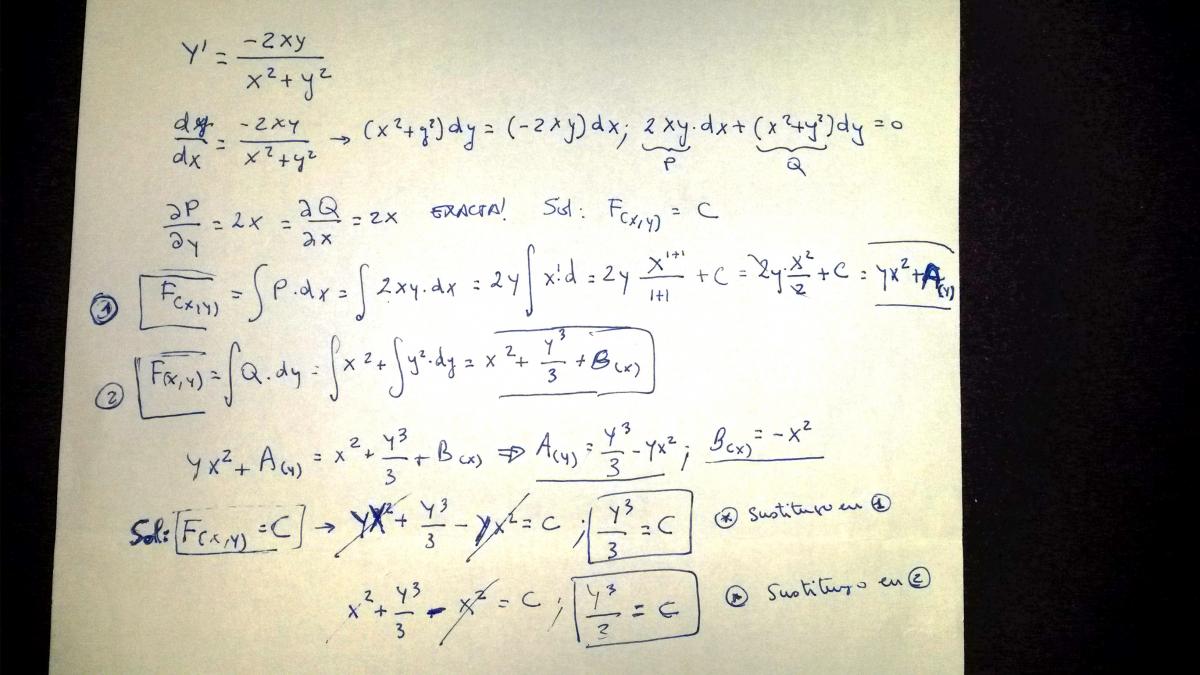 y' = -2xy / x² + y²
dy/dx = -2xy / x² + y² → (x²+y²)dy = (-2xy)dx; 2xy·dx + (x²+y²)dy = 0
P Q
∂P/∂y = 2x = ∂Q/∂x = 2x EXACTA! Sol: F(x,y) = C
① F(x,y) = ∫P·dx = ∫2xy·dx = 2y∫x¹·d = 2y x¹⁺¹/1+1 + C = 2y·x²/2 + C = yx² + A(y)
② F(x,y) = ∫Q·dy = ∫x² + ∫y²·dy = x² + y³/3 + B(x)
yx² + A(y) = x² + y³/3 + B(x) ⇒ A(y) = y³/3 - yx²; B(x) = -x²
Sol: F(x,y) = C → yx² + y³/3 - yx² = C; y³/3 = C * Sustituyo en ①
x² + y³/3 - x² = C; y³/3 = C * Sustituyo en ②